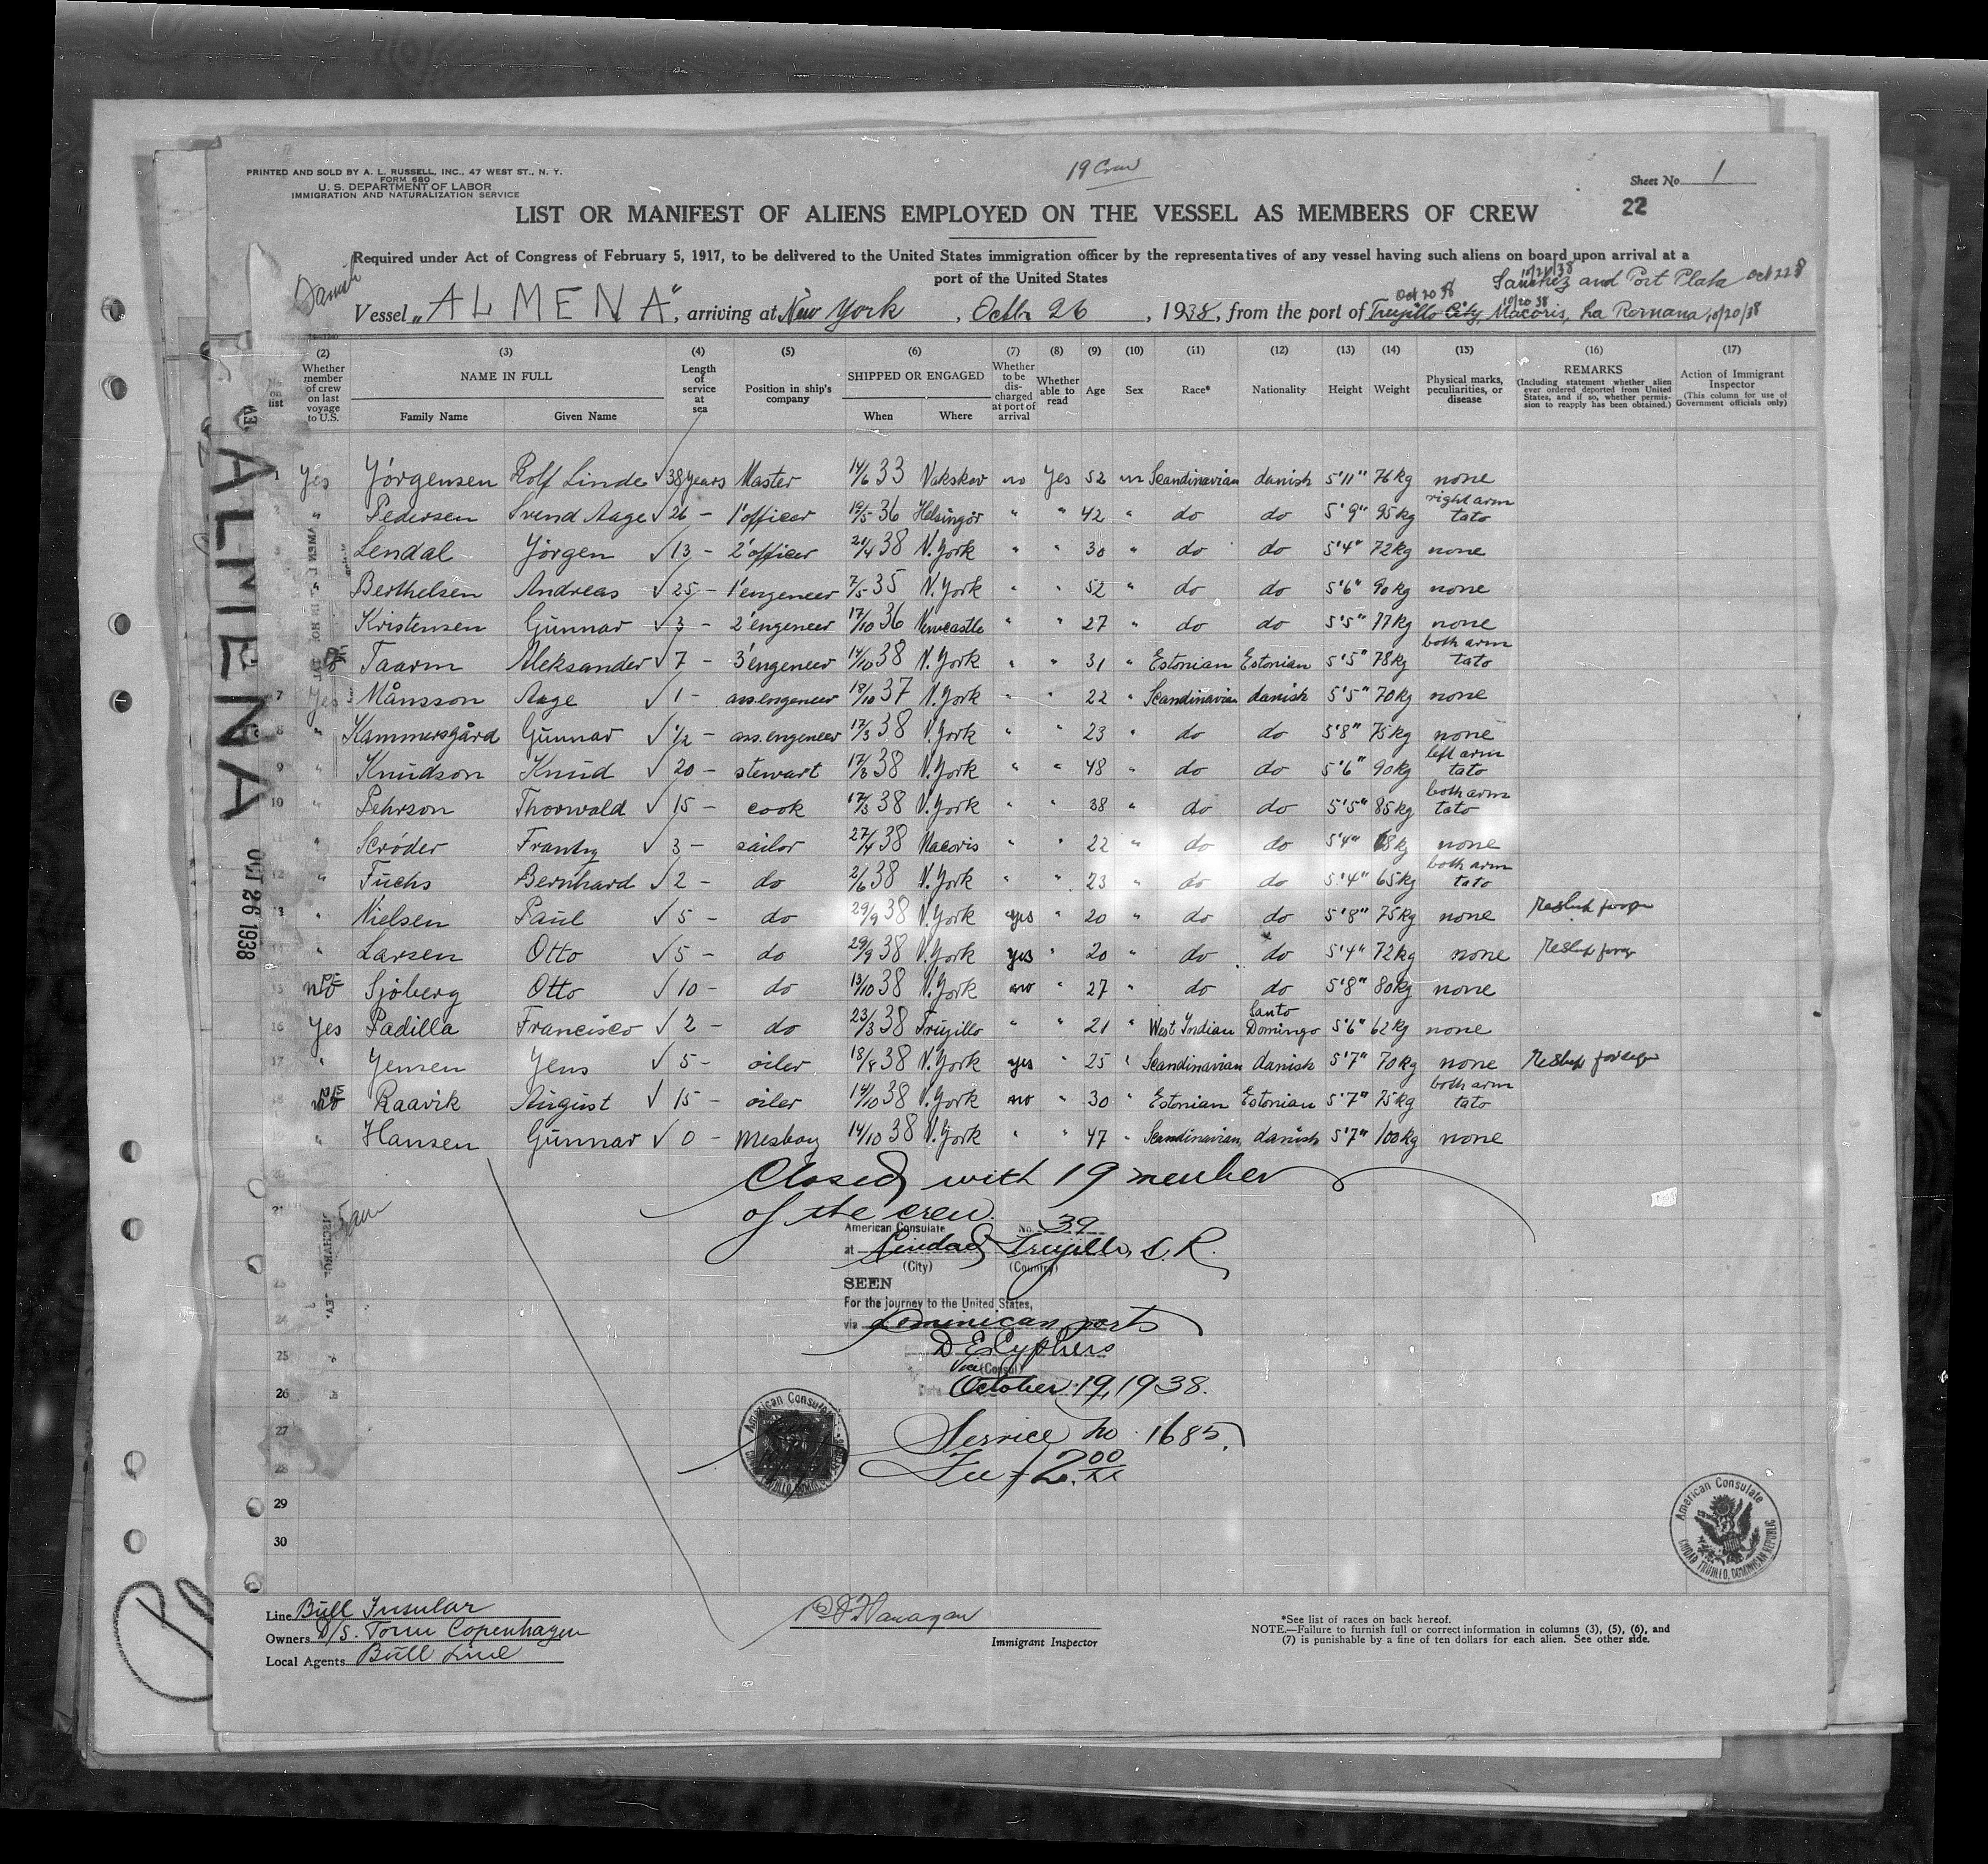 PRINTED AND SOLD BY A. L. RUSSELL, INC., 47 WEST ST., N. Y.
FORM 680
U. S. DEPARTMENT OF LABOR
IMMIGRATION AND NATURALIZATION SERVICE
19 Crew
Sheet No. 1
22
LIST OR MANIFEST OF ALIENS EMPLOYED ON THE VESSEL AS MEMBERS OF CREW
Required under Act of Congress of February 5, 1917, to be delivered to the United States immigration officer by the representatives of any vessel having such aliens on board upon arrival at a
port of the United States
Danish
Oct 20 38 10/21/38 Sanchez and Port Plata oct 22 8
Vessel „ALMENA", arriving at New York, Octbr 26, 1938, from the port of Trujillo City, Macoris, 10/20 38 La Romana, 10/20/38
(2) (3) (4) (5) (6) (7) (8) (9) (10) (11) (12) (13) (14) (15) (16) (17)
No. on list
Whether member of crew on last voyage to U.S.
NAME IN FULL
Family Name Given Name
Length of service at sea
Position in ship's company
SHIPPED OR ENGAGED
When Where
Whether to be discharged at port of arrival
Whether able to read
Age
Sex
Race*
Nationality
Height
Weight
Physical marks, peculiarities, or disease
REMARKS
(Including statement whether alien ever ordered deported from United States, and if so, whether permission to reapply has been obtained.)
Action of Immigrant Inspector
(This column for use of Government officials only)
1 Yes Jörgensen Rolf Linde √ 38 years Master 14/6 33 Nakskov no Yes 52 m Scandinavian danish 5'11" 76 kg none
2 " Pedersen Svend Aage √ 26 - 1' officer 19/5 36 Helsingör " " 42 " do do 5'9" 95 kg right arm tato
3 Lendal Jörgen √ 13 - 2' officer 21/4 38 N.York " " 30 " do do 5'4" 72 kg none
" Berthelsen Andreas √ 25 - 1' engeneer 7/5 35 N.York " " 52 " do do 5'6" 90 kg none
Kristensen Gunnar √ 3 - 2' engeneer 17/10 36 Newcastle " " 27 " do do 5'5" 77 kg none
Taarm Aleksander √ 7 - 3' engeneer 14/10 38 N.York " " 31 " Estonian Estonian 5'5" 78 kg both arm tato
7 Yes Månsson Aage √ 1 - ass.engeneer 18/10 37 N.York " " 22 " Scandinavian danish 5'5" 70 kg none
8 " Kammersgård Gunnar √ 1/2 - ass.engeneer 17/3 38 N.York " " 23 " do do 5'8" 75 kg none
9 " Knudson Knud √ 20 - stewart 17/3 38 N.York " " 48 " do do 5'6" 90 kg left arm tato
10 " Pehrson Thorwald √ 15 - cook 17/3 38 N.York " " 38 " do do 5'5" 85 kg both arm tato
11 " Scröder Frantz √ 3 - sailor 27/4 38 Macoris " " 22 " do do 5'4" 68 kg none
12 " Fuchs Bernhard √ 2 - do 2/6 38 N.York " " 23 " do do 5'4" 65 kg both arm tato
13 " Nielsen Paul √ 5 - do 29/9 38 N.York yes " 20 " do do 5'8" 75 kg none Reship foreign
14 " Larsen Otto √ 5 - do 29/9 38 N.York yes " 20 " do do 5'4" 72 kg none Reship foreign
15 no Sjöberg Otto √ 10 - do 13/10 38 N.York no " 27 " do do 5'8" 80 kg none
16 Yes Padilla Francisco √ 2 - do 23/3 38 Trujillo " " 21 " West Indian Santo Domingo 5'6" 62 kg none
17 " Jensen Jens √ 5 - oiler 18/8 38 N.York yes " 25 " Scandinavian danish 5'7" 70 kg none Reship foreign
18 no Raavik August √ 15 - oiler 14/10 38 N.York no " 30 " Estonian Estonian 5'7" 75 kg both arm tato
" Hansen Gunnar √ 0 - Mesboy 14/10 38 N.York " " 47 " Scandinavian danish 5'7" 100 kg none
20
21
23
24
25
26
27
28
29
30
Closed with 19 member
of the crew.
American Consulate No. 39
at Ciudad Trujillo, D. R.
(City) (Country)
SEEN
For the journey to the United States,
via Dominican ports
D E Cyphers
Vice (Consul)
Date October 19, 1938.
Service No. 1685
Fee $2.00
American Consulate
American Consulate
CIUDAD TRUJILLO, DOMINICAN REPUBLIC
ALMENA
OCT 26 1938
Line Bull Insular
Owners D/S. Torm Copenhagen
Local Agents Bull Line
Immigrant Inspector
*See list of races on back hereof.
NOTE.—Failure to furnish full or correct information in columns (3), (5), (6), and
(7) is punishable by a fine of ten dollars for each alien. See other side.